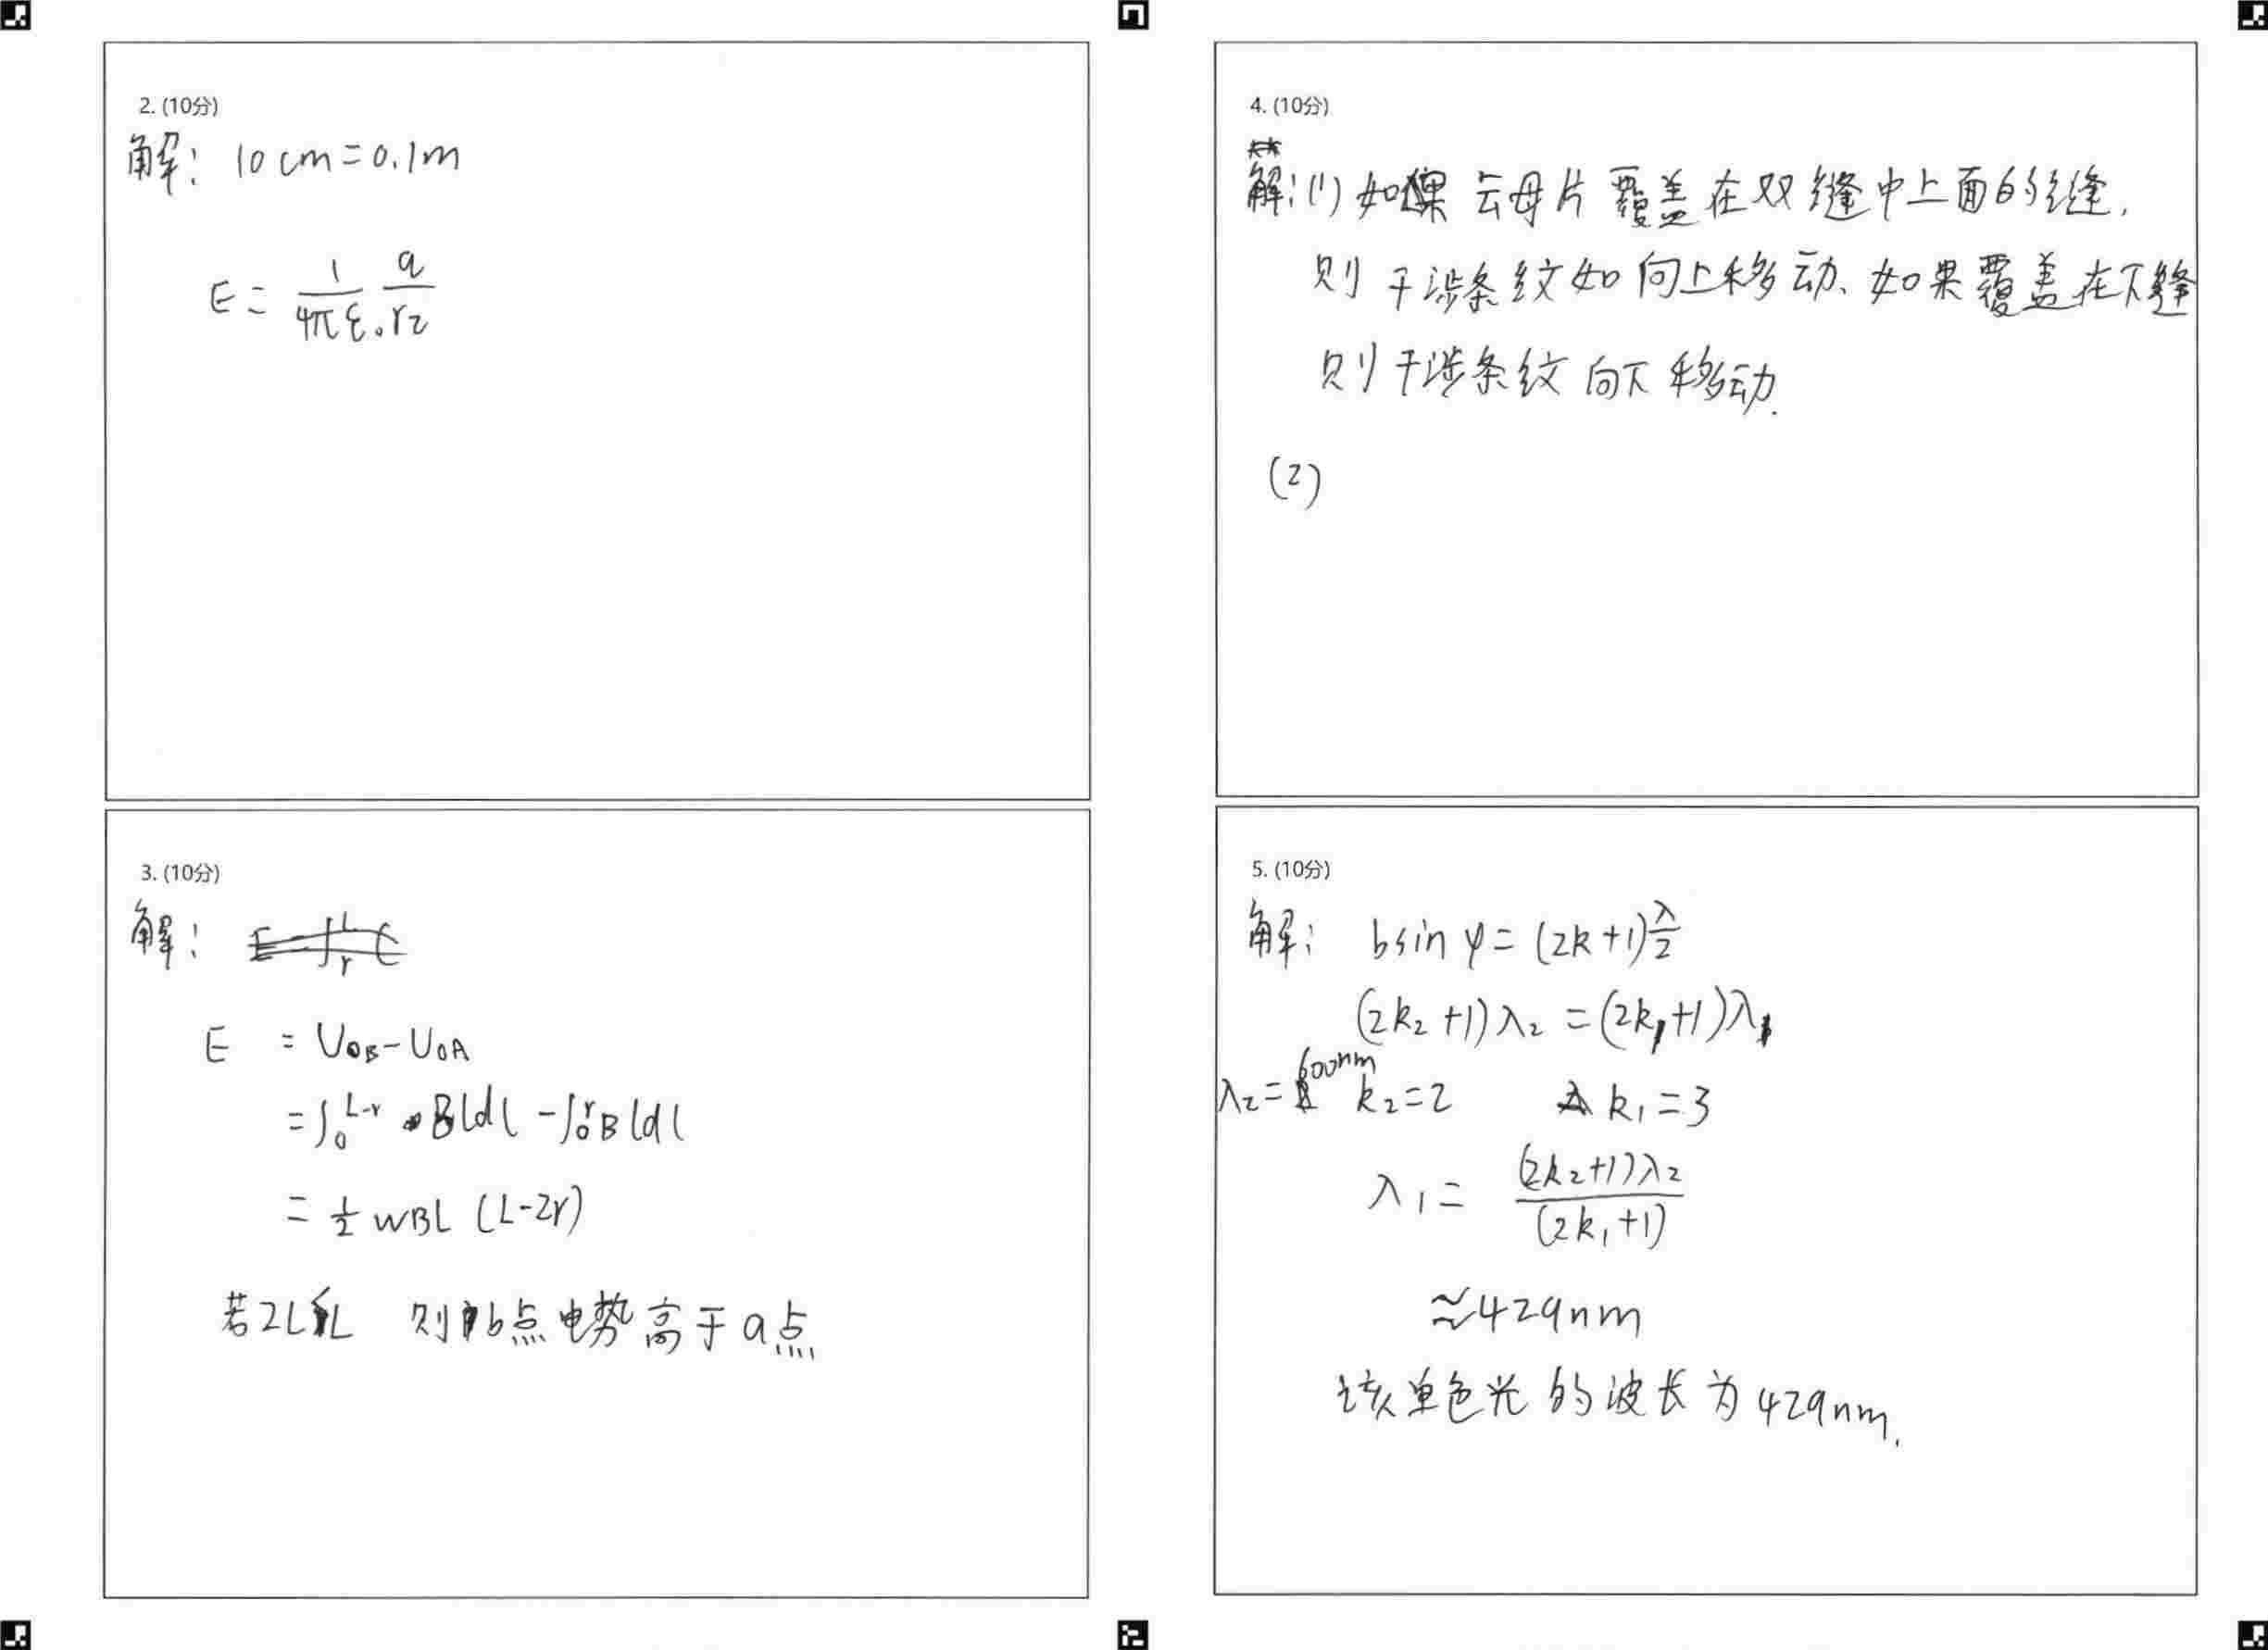 2. (10分)
解: 10cm=0.1m
E = 1/4πε₀ q/r2
3. (10分)
解:
E = UOB-UOA
=∫₀^L-r Bldl-∫₀^r Bldl
= 1/2 WBL (L-2r)
若2L L 则b点电势高于a点
4. (10分)
解:(1) 如果云母片覆盖在双缝中上面的缝,
则干涉条纹如向上移动、如果覆盖在下缝
则干涉条纹向下移动.
(2)
5. (10分)
解: bsin φ= (2k+1)λ/2
(2k₂+1)λ₂=(2k₁+1)λ₁
λ₂=600nm k₂=2 k₁=3
λ₁= (2k₂+1)λ₂/(2k₁+1)
≈429nm
该单色光的波长为429nm.